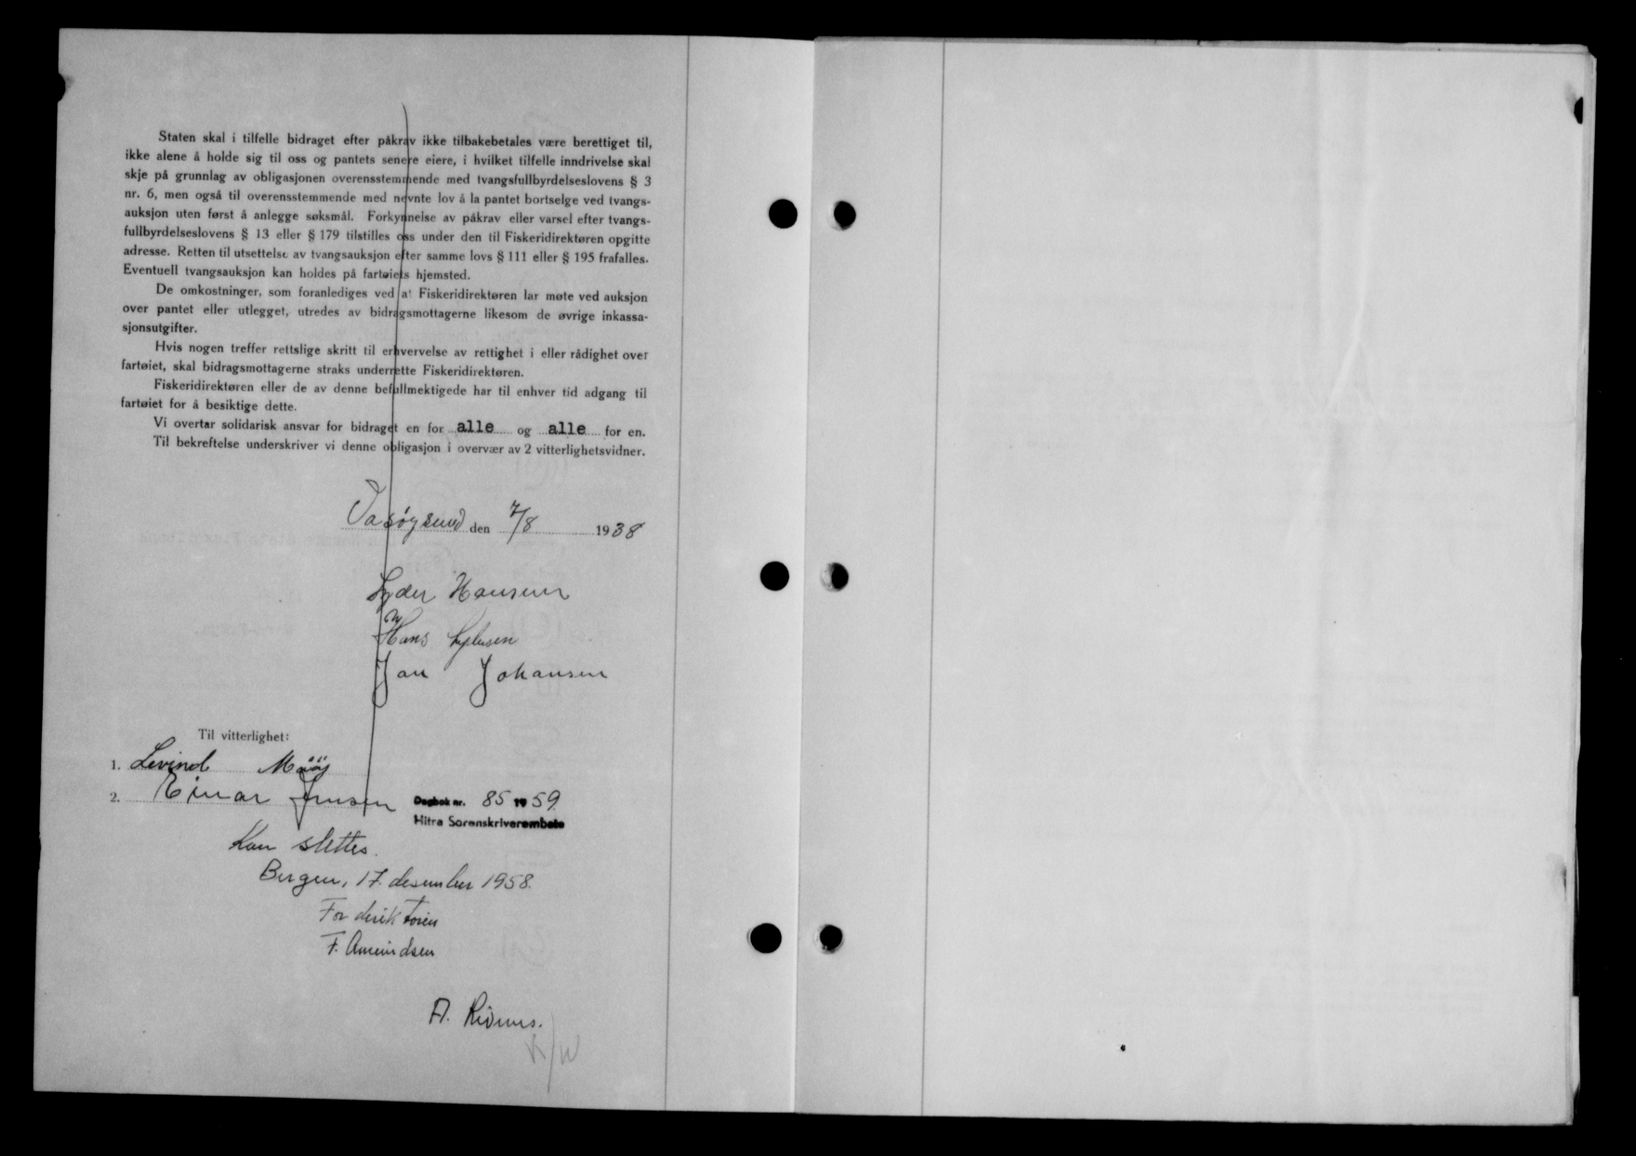 Staten skal i tilfelle bidraget efter påkrav ikke tilbakebetales være berettiget til,
ikke alene å holde sig til oss og pantets senere eiere, i hvilket tilfelle inndrivelse skal
skje på grunnlag av obligasjonen overensstemmende med tvangsfullbyrdelseslovens § 3
nr. 6, men også til overensstemmende med nevnte lov å la pantet bortselge ved tvangs-
auksjon uten først å anlegge søksmål. Forkynnelse av påkrav eller varsel efter tvangs-
fullbyrdelseslovens § 13 eller § 179 tilstilles oss under den til Fiskeridirektøren opgitte
adresse. Retten til utsettelse av tvangsauksjon efter samme lovs § 111 eller § 195 frafalles.
Eventuell tvangsauksjon kan holdes på fartøiets hjemsted.
De omkostninger, som foranlediges ved at Fiskeridirektøren lar møte ved auksjon
over pantet eller utlegget, utredes av bidragsmottagerne likesom de øvrige inkassa-
sjonsutgifter.
Hvis nogen treffer rettslige skritt til erhvervelse av rettighet i eller rådighet over
fartøiet, skal bidragsmottagerne straks underrette Fiskeridirektøren.
Fiskeridirektøren eller de av denne befullmektigede har til enhver tid adgang til
fartøiet for å besiktige dette.
Vi overtar solidarisk ansvar for bidraget en for alle og alle for en.
Til bekreftelse underskriver vi denne obligasjon i overvær av 2 vitterlighetsvidner.
Vasøysund den 7/8 1938
Lyder Hansen
Hans
Jan Johansen
Til vitterlighet:
1. Levinol
2. Einar Jensen
Dagbok nr. 85 1959
Hitra Sorenskriverembete
Kan slettes.
Bergen, 17. desember 1958.
For direktøren
F. Amundsen
A.